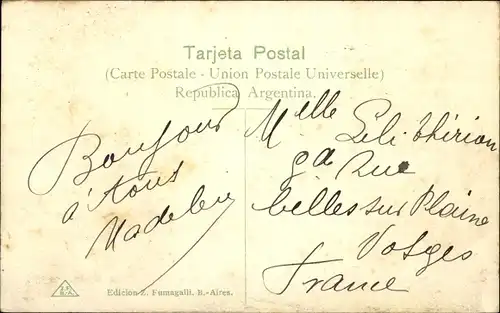 Tarjeta Postal
(Carte Postale - Union Postale Universelle)
Republica Argentina.
Bonjour
à tous
Madeleine
Mlle Lili Thirion
gde Rue
Celles sur Plaine
Vosges
France
Edicion Z. Fumagalli. B.-Aires.